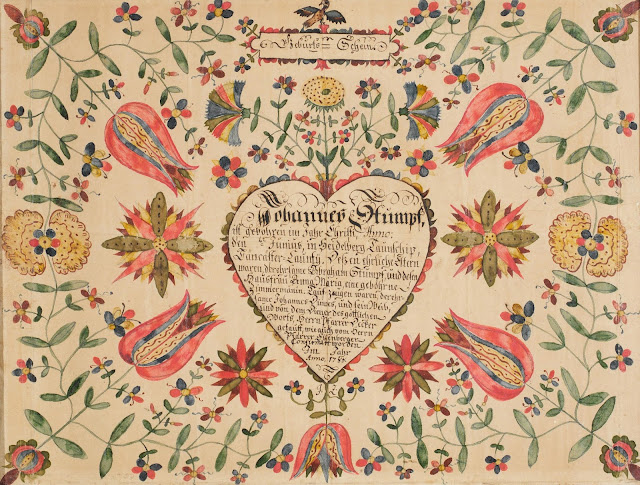 Geburts = Schein.
Johannes Stumpf,
ist gebohren im Jahr Christi, Anno:
den Junius, in Heidelberg Taunschip,
Lancaster Caunty, Deßen eheliche Eltern
waren der ehrsame Abraham Stumpf, und deßen
Hausfrau Anna Maria, eine gebohrne
Zimmermännin. Tauf Zeugen waren der ehr-
same Johannes und sein Weib,
und von dem Diener des göttlichen
Worts Herrn Pfarrer
getauft, wie auch vom Herrn
Pfarrer
Confirmirt worden.
Im Jahr
Anno, 17